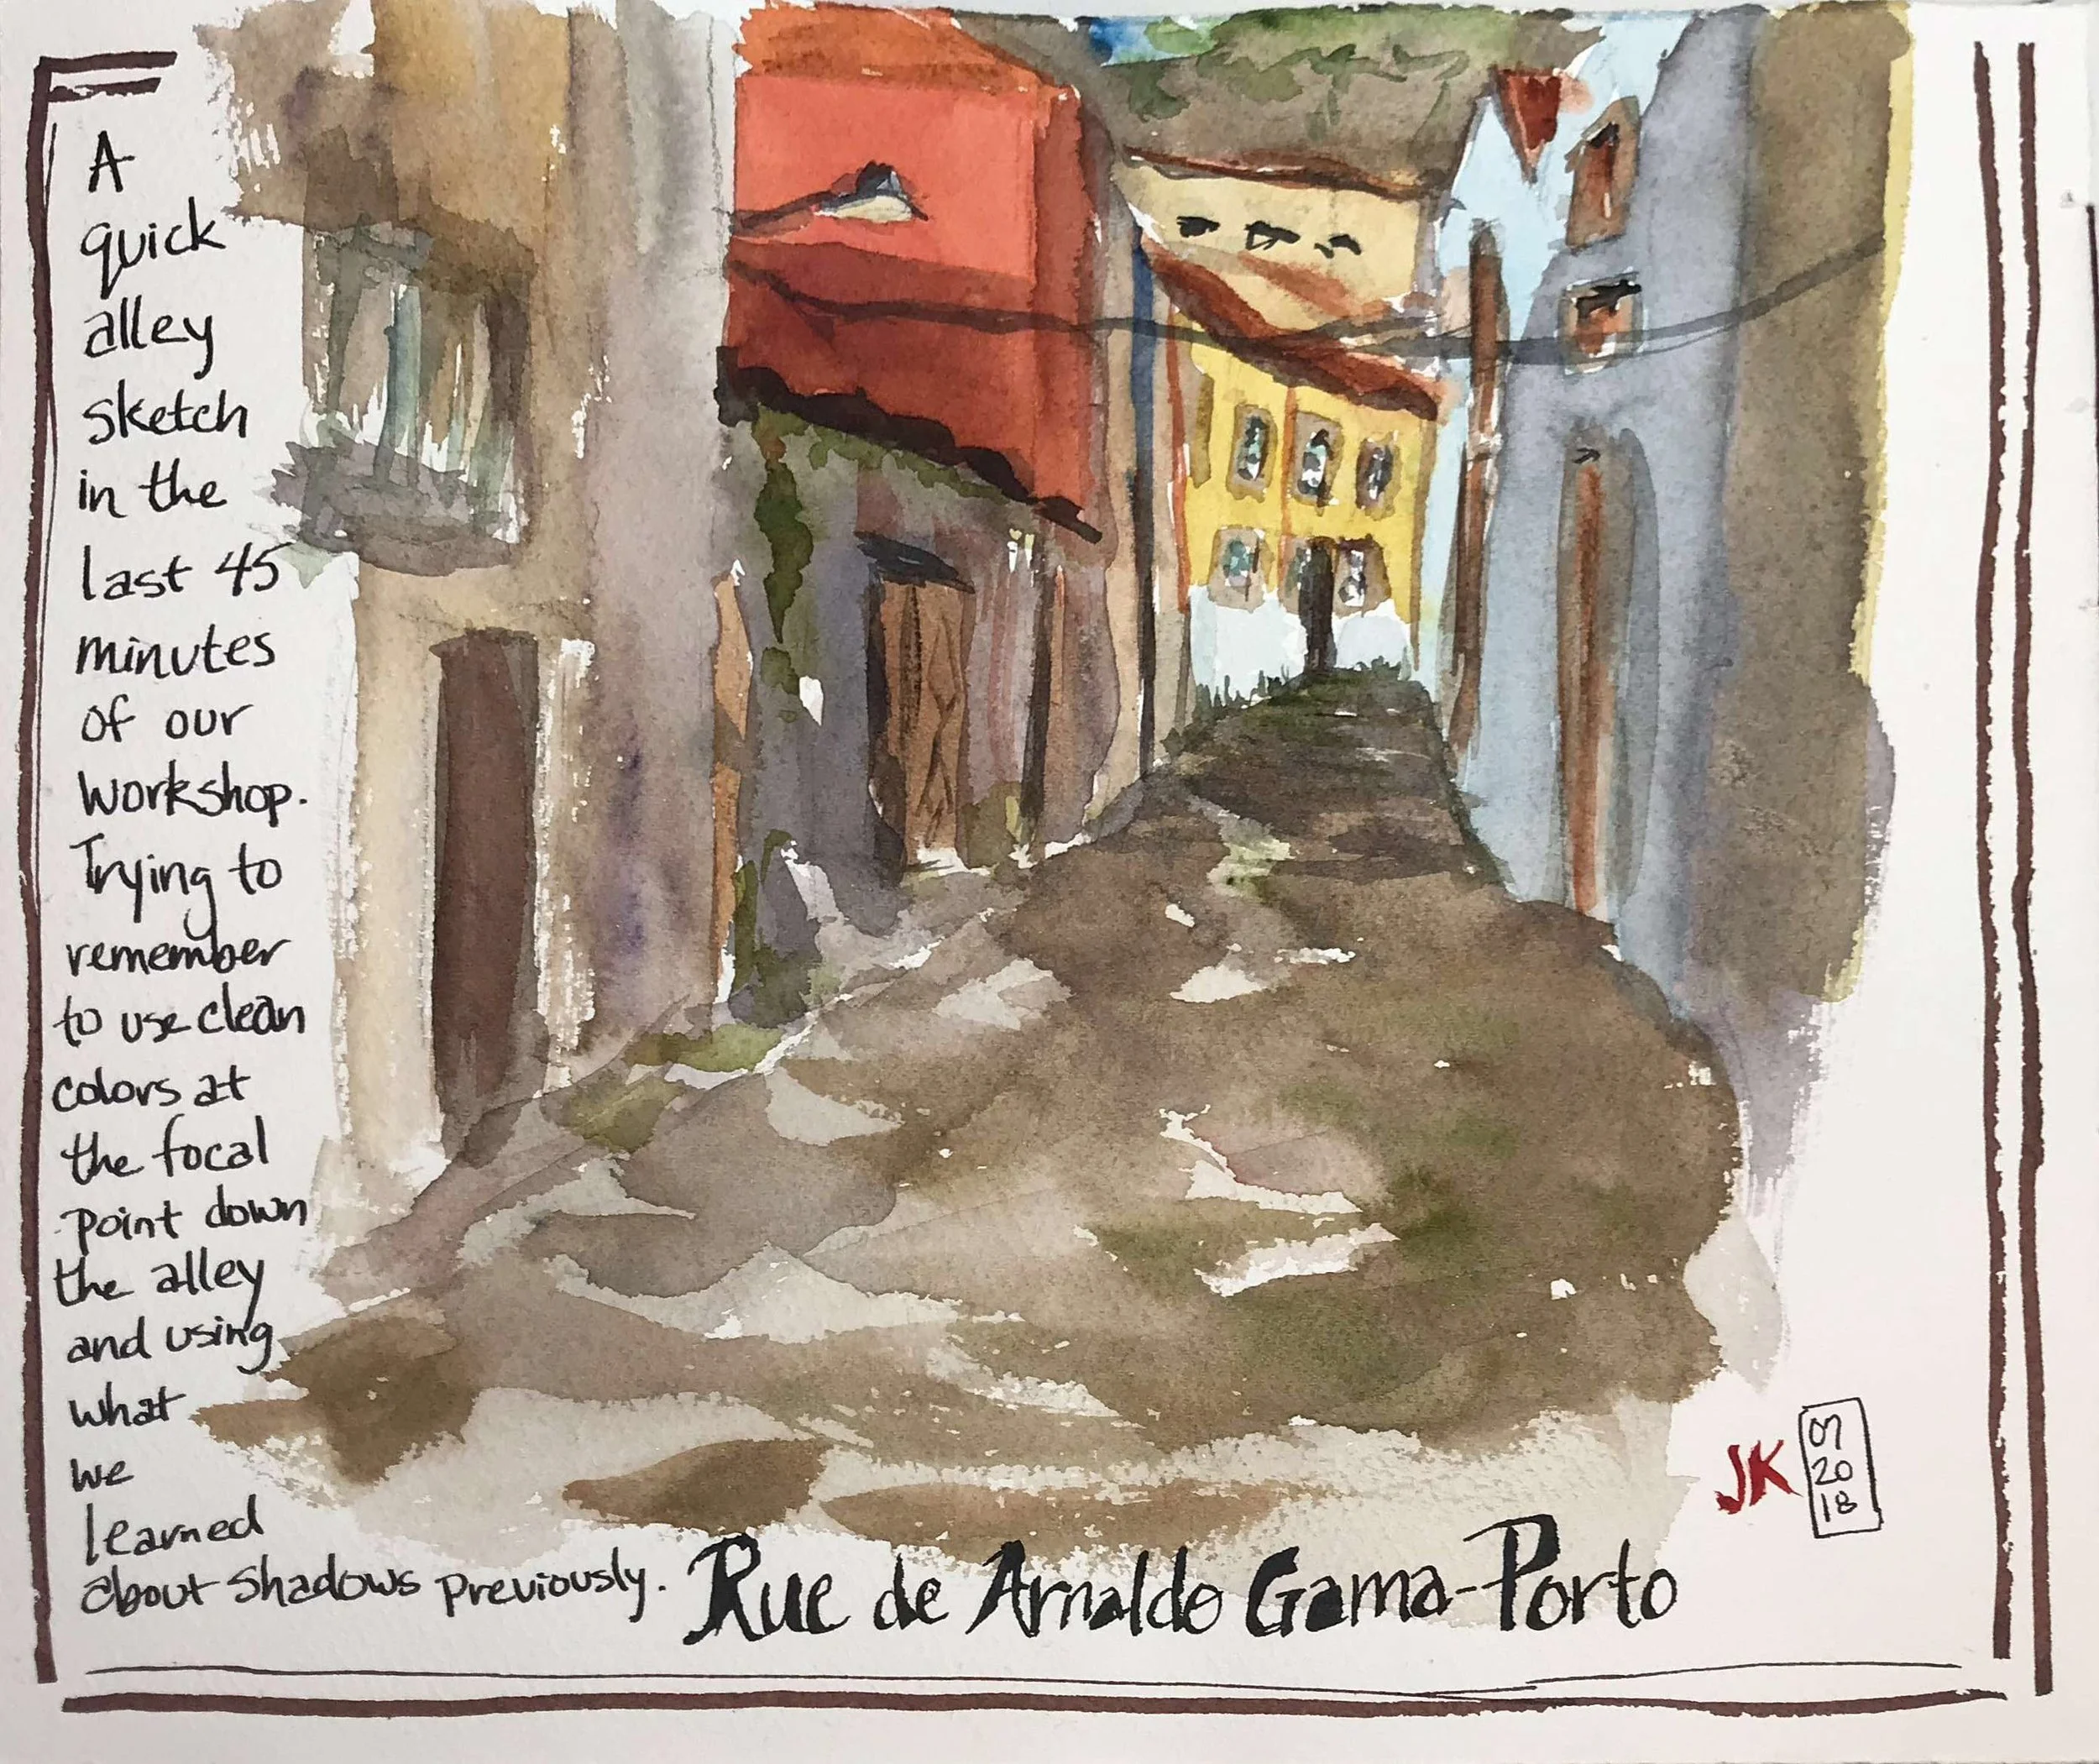 A
quick
alley
sketch
in the
last 45
minutes
of our
workshop.
Trying to
remember
to use clean
colors at
the focal
point down
the alley
and using
what
we
learned
about shadows previously.
Rue de Arnaldo Gama-Porto
JK
07
20
18